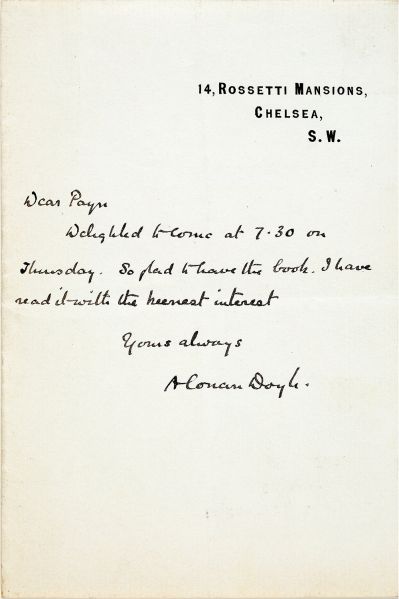 14, ROSSETTI MANSIONS,
CHELSEA,
S. W.
Dear Payn
Delighted to come at 7.30 on
Thursday. So glad to have the book. I have
read it with the keenest interest
Yours always
A Conan Doyle.